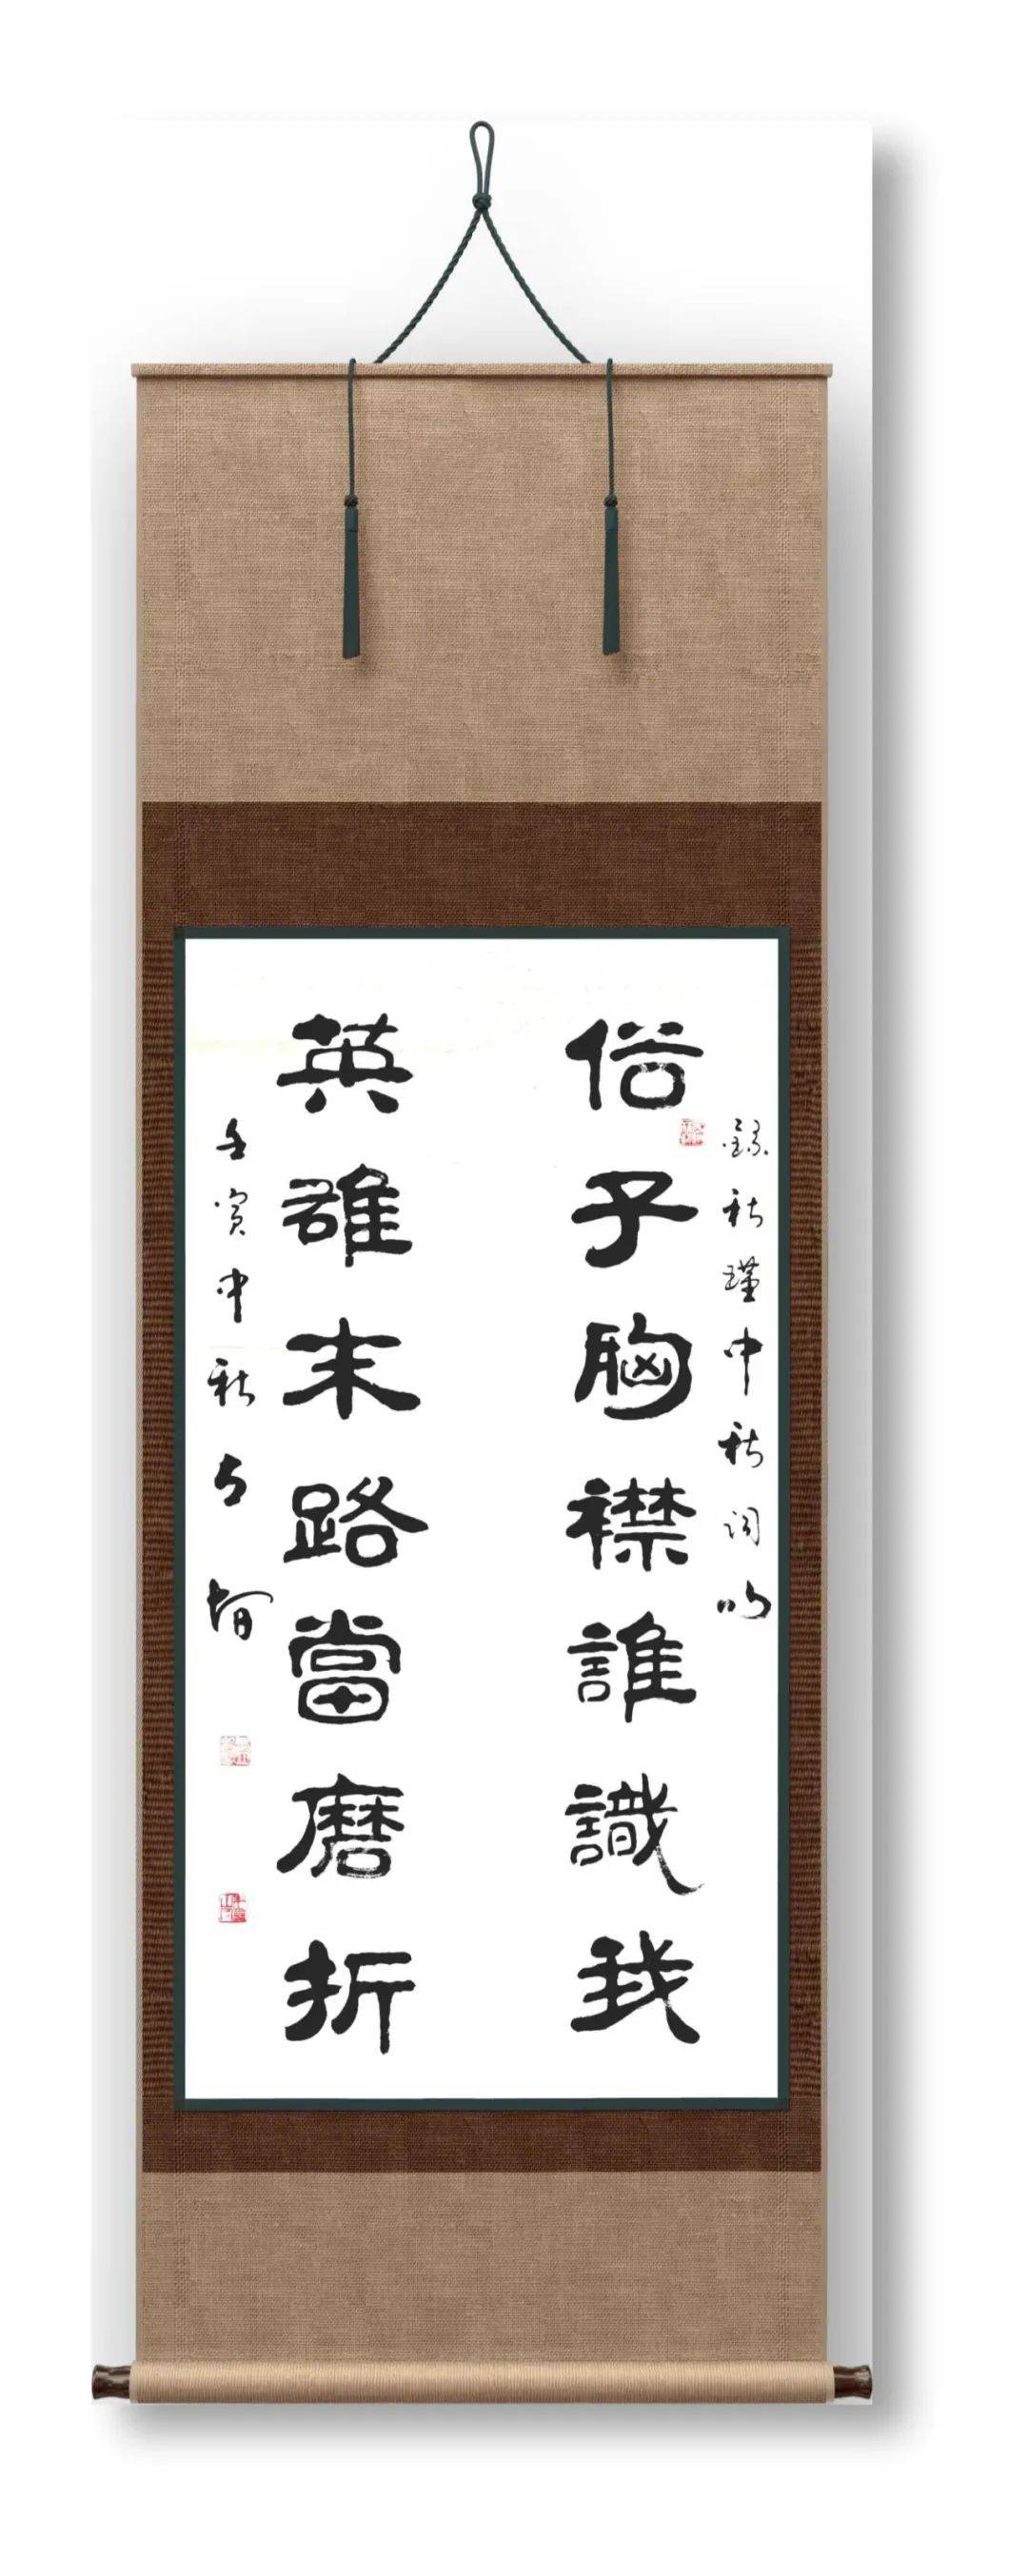 錄秋瑾中秋詞
俗子胸襟誰識我
英雄末路當磨折
壬寅中秋